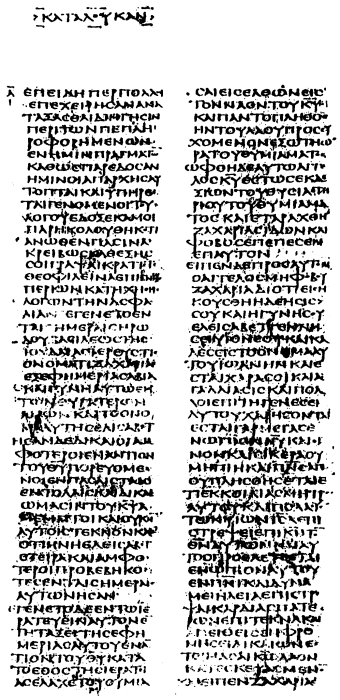 ΚΑΤΑΛΟΥΚΑΝ
Α
ΕΠΕΙΔΗΠΕΡΠΟΛΛΟΙ
ΕΠΕΧΕΙΡΗϹΑΝΑΝΑ
ΤΑΞΑϹΘΑΙΔΙΗΓΗϹΙΝ
ΠΕΡΙΤΩΝΠΕΠΛΗ
ΡΟΦΟΡΗΜΕΝΩΝ
ΕΝΗΜΙΝΠΡΑΓΜΑΤ
ΚΑΘΩϹΠΑΡΕΔΟϹΑΝ
ΗΜΙΝΟΙΑΠΑΡΧΗϹΑΥ
ΤΟΠΤΑΙΚΑΙΥΠΗΡΕ
ΤΑΙΓΕΝΟΜΕΝΟΙΤΟΥ
ΛΟΓΟΥΕΔΟΞΕΚΑΜΟΙ
ΠΑΡΗΚΟΛΟΥΘΗΚΟΤΙ
ΑΝΩΘΕΝΠΑϹΙΝΑ
ΚΡΕΙΒΩϹΚΑΘΕΞΗϹ
ϹΟΙΓΡΑΨΑΙΚΡΑΤΙ
ΘΕΟΦΙΛΕΙΝΑΕΠΙΓΝΩϹ
ΠΕΡΙΩΝΚΑΤΗΧΗΘΗϹ
ΛΟΓΩΝΤΗΝΑϹΦΑ
ΛΙΑΝ ΕΓΕΝΕΤΟΕΝ
ΤΑΙϹΗΜΕΡΑΙϹΗΡΩ
ΔΟΥΒΑϹΙΛΕΩϹΤΗϹ
ΙΟΥΔΑΙΑϹΙΕΡΕΥϹΤΙϹ
ΟΝΟΜΑΤΙΖΑΧΑΡΙΑϹ
ΕΞΕΦΗΜΕΡΙΑϹΑΒΙΑ
ΚΑΙΗΓΥΝΗΑΥΤΟΥΕΚ
ΤΩΝΘΥΓΑΤΕΡΩΝ
ΑΑΡΩΝΚΑΙΤΟΟΝΟ
ΜΑΑΥΤΗϹΕΛΙϹΑΒΕΤ
ΗϹΑΝΔΕΔΙΚΑΙΟΙΑΜ
ΦΟΤΕΡΟΙΕΝΑΝΤΙΟΝ
ΤΟΥΘΥΠΟΡΕΥΟΜΕ
ΝΟΙΕΝΠΑϹΑΙϹΤΑΙϹ
ΕΝΤΟΛΑΙϹΚΑΙΔΙΚΑΙ
ΩΜΑϹΙΝΤΟΥΚΥΑ
ΜΕΜΠΤΟΙΚΑΙΟΥΚΗΝ
ΑΥΤΟΙϹΤΕΚΝΟΝΚΑΘ
ΟΤΙΗΝΗΕΛΙϹΑΒΕΤ
ϹΤΕΙΡΑΚΑΙΑΜΦΟ
ΤΕΡΟΙΠΡΟΒΕΒΗΚΟ
ΤΕϹΕΝΤΑΙϹΗΜΕΡΑΙϹ
ΑΥΤΩΝΗϹΑΝ
ΕΓΕΝΕΤΟΔΕΕΝΤΩΙΕ
ΡΑΤΕΥΕΙΝΑΥΤΟΝΕ
ΤΗΤΑΞΕΙΤΗϹΕΦΗ
ΜΕΡΙΑϹΑΥΤΟΥΕΝΑ
ΤΙΟΝΤΟΥΘΥΚΑΤΑ
ΤΟΕΘΟϹΤΗϹΙΕΡΑΤΙ
ΑϹΕΛΑΧΕΤΟΥΘΥΜΙΑ
ϹΑΙΕΙϹΕΛΘΩΝΕΙϹ
ΤΟΝΝΑΟΝΤΟΥΚΥ
ΚΑΙΠΑΝΤΟΠΛΗΘΟϹ
ΗΝΤΟΥΛΑΟΥΠΡΟϹΕΥ
ΧΟΜΕΝΟΝΕΞΩΤΗΩ
ΡΑΤΟΥΘΥΜΙΑΜΑΤΟϹ
ΩΦΘΗΔΕΑΥΤΩΑΓΓΕ
ΛΟϹΚΥΕϹΤΩϹΕΚΔΕ
ΞΙΩΝΤΟΥΘΥϹΙΑϹΤΗ
ΡΙΟΥΤΟΥΘΥΜΙΑΜΑ
ΤΟϹΚΑΙΕΤΑΡΑΧΘΗ
ΖΑΧΑΡΙΑϹΙΔΩΝΚΑΙ
ΦΟΒΟϹΕΠΕΠΕϹΕΝ
ΕΠΑΥΤΟΝ
ΕΙΠΕΝΔΕΠΡΟϹΑΥΤΟΝ
ΟΑΓΓΕΛΟϹΜΗΦΟΒΟΥ
ΖΑΧΑΡΙΑΔΙΟΤΙΕΙϹΗ
ΚΟΥϹΘΗΗΔΕΗϹΙϹ
ϹΟΥΚΑΙΗΓΥΝΗϹΟΥ
ΕΛΙϹΑΒΕΤΓΕΝΝΗ
ϹΕΙΥΙΟΝϹΟΙΚΑΙΚΑ
ΛΕϹΕΙϹΤΟΟΝΟΜΑΑΥ
ΤΟΥΙΩΑΝΝΗΝΚΑΙΕ
ϹΤΑΙΧΑΡΑϹΟΙΚΑΙΑ
ΓΑΛΛΙΑϹΙϹΚΑΙΠΟΛ
ΛΟΙΕΠΙΤΗΓΕΝΕϹΕΙ
ΑΥΤΟΥΧΑΡΗϹΟΝΤΑΙ
ΕϹΤΑΙΓΑΡΜΕΓΑϹΕ
ΝΩΠΙΟΝΚΥΚΑΙΟΙ
ΝΟΝΚΑΙϹΙΚΕΡΑΟΥ
ΜΗΠΙΗΚΑΙΠΝϹΑΓΙ
ΟΥΠΛΗϹΘΗϹΕΤΑΙΕ
ΤΙΕΚΚΟΙΛΙΑϹΜΗΤΡΟϹ
ΑΥΤΟΥΚΑΙΠΟΛΛΟΥϹ
ΤΩΝΥΙΩΝΙΗΛΕΠΙ
ϹΤΡΕΨΕΙΕΠΙΚΝΤΟ
ΘΝΑΥΤΩΝΚΑΙΑΥ
ΤΟϹΠΡΟΕΛΕΥϹΕΤΑΙ
ΕΝΩΠΙΟΝΑΥΤΟΥ
ΕΝΠΝΙΚΑΙΔΥΝΑ
ΜΕΙΗΛΙΑΕΠΙϹΤΡΕ
ΨΑΙΚΑΡΔΙΑϹΠΑΤΕ
ΡΩΝΕΠΙΤΕΚΝΑΚΑΙ
ΑΠΕΙΘΕΙϹΕΝΦΡΟ
ΝΗϹΕΙΔΙΚΑΙΩΝΕ
ΤΟΙΜΑϹΑΙΚΩΛΑΟΝ
ΚΑΤΕϹΚΕΥΑϹΜΕΝΟΝ
ΚΑΙΕΙΠΕΝΖΑΧΑΡΙΑϹ